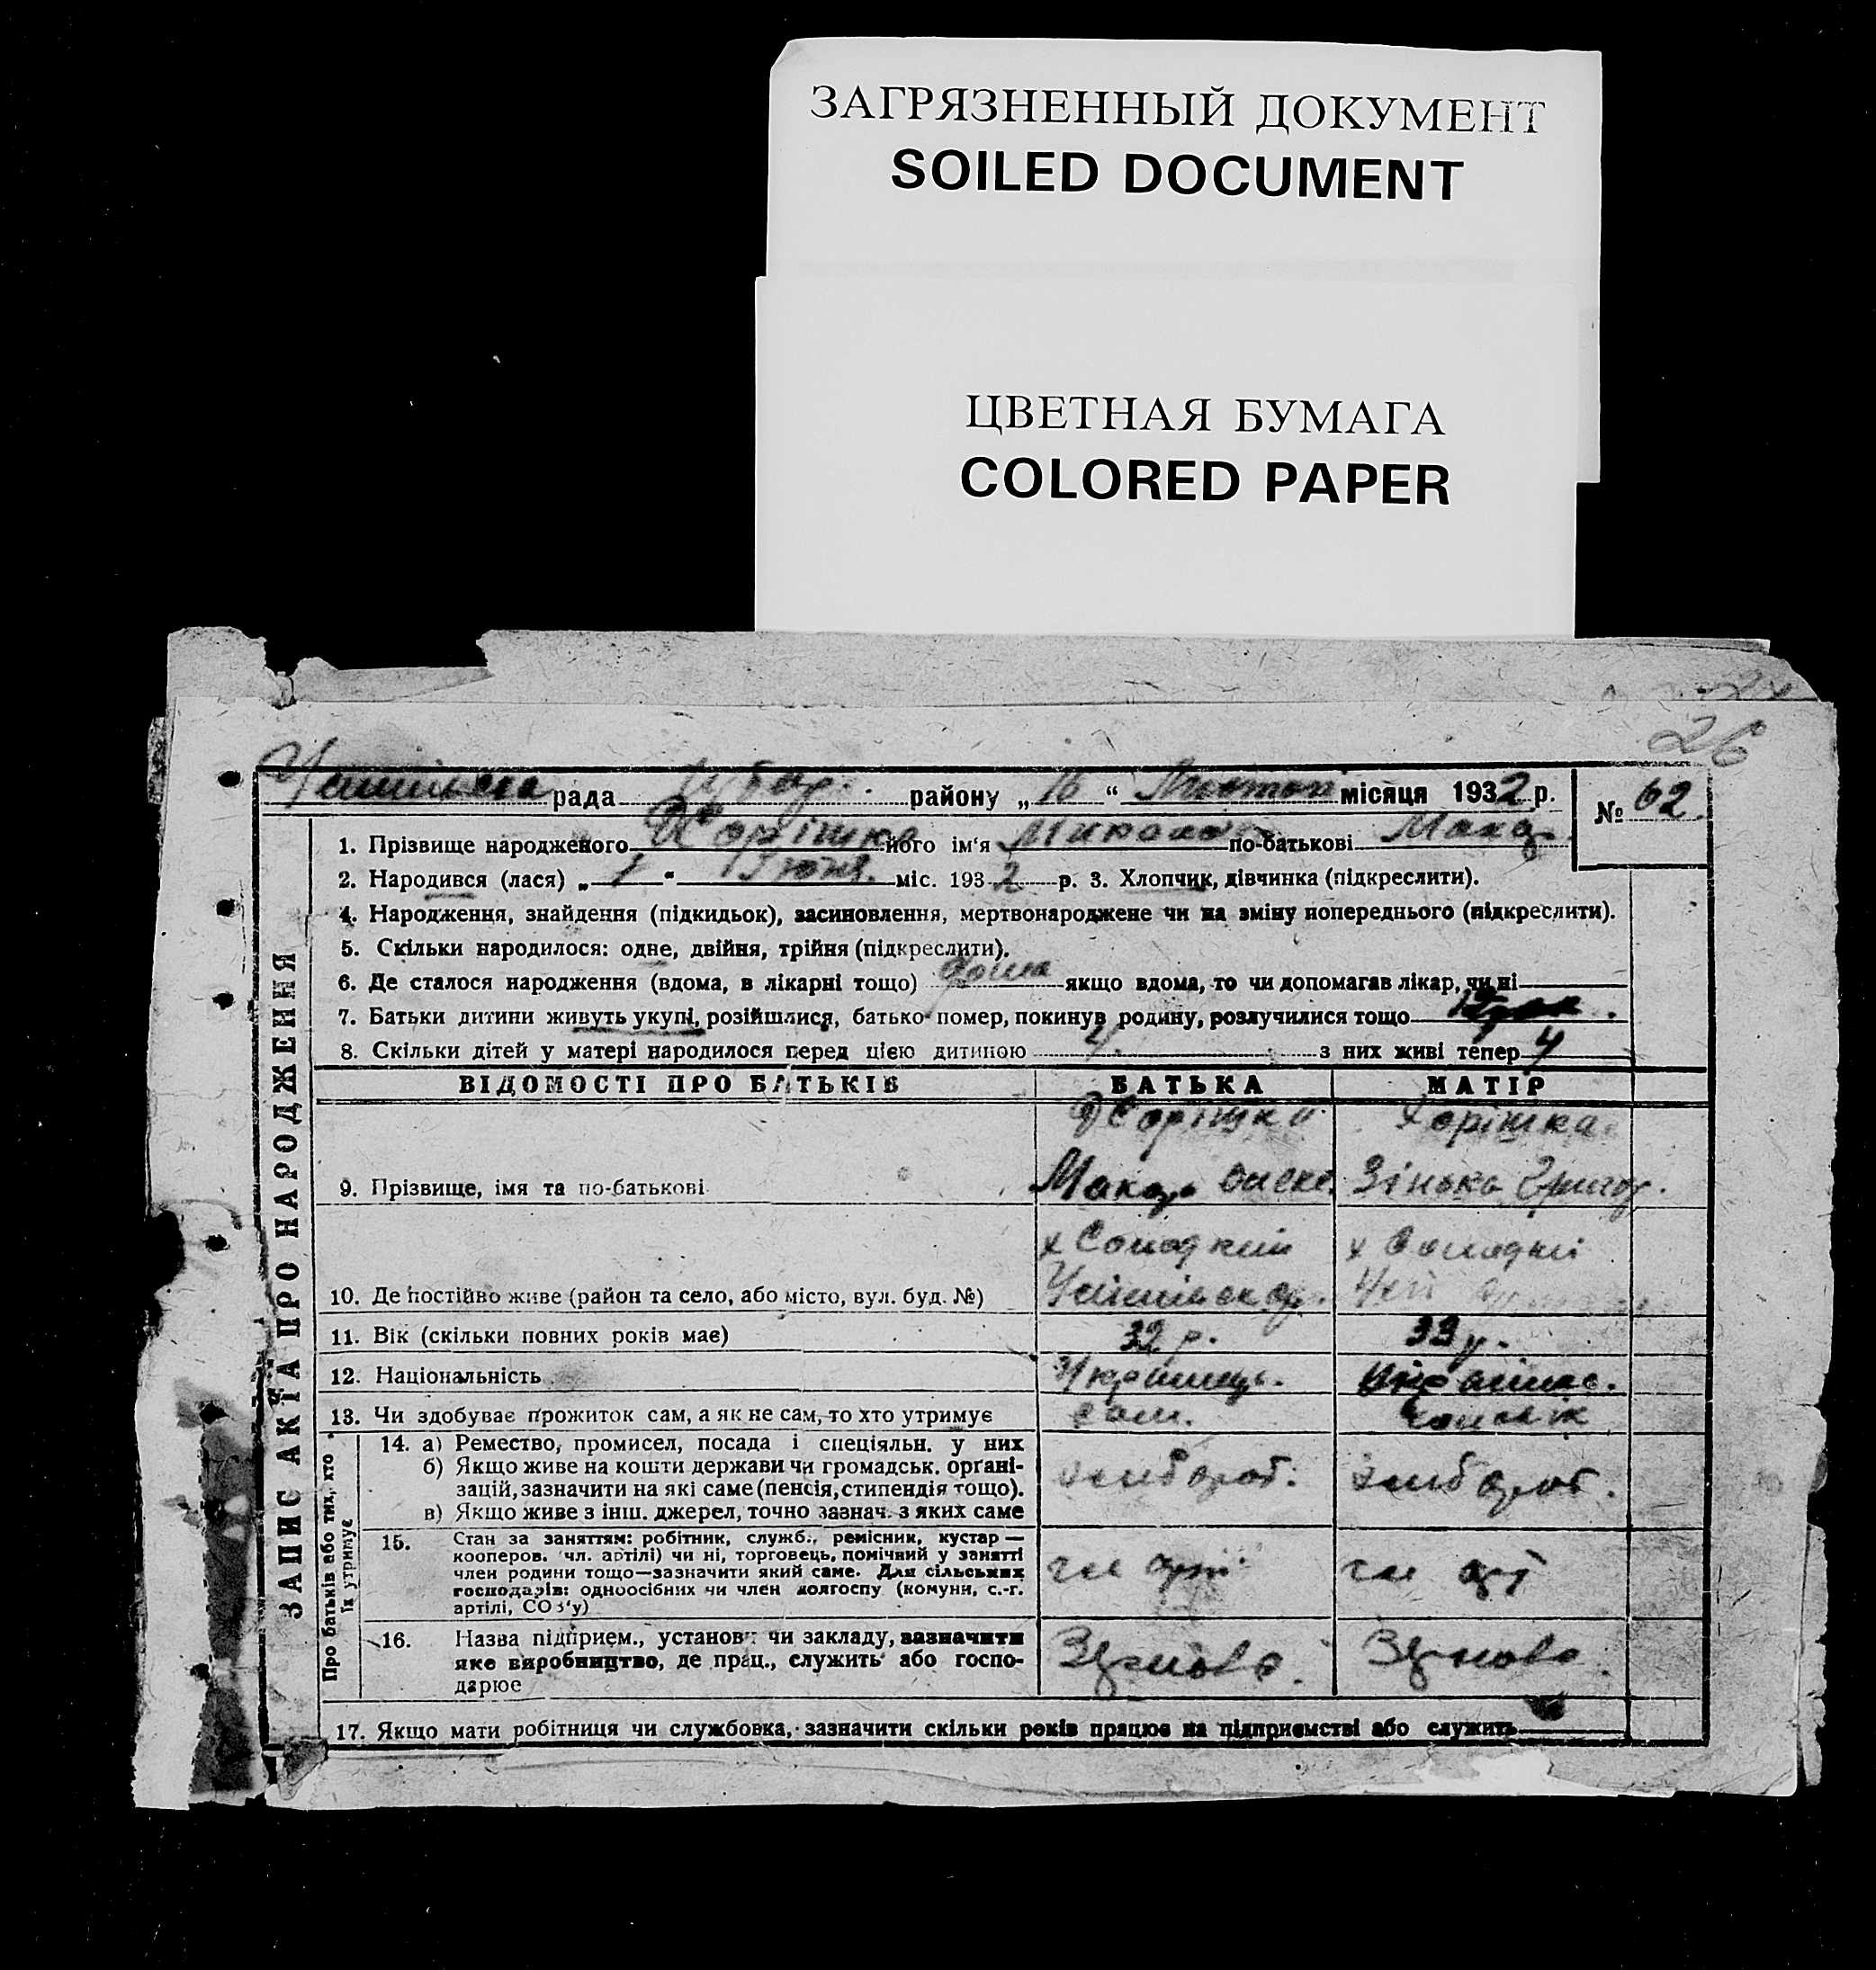 ЗАГРЯЗНЕННЫЙ ДОКУМЕНТ
SOILED DOCUMENT
ЦВЕТНАЯ БУМАГА
COLORED PAPER
26
рада району „ 16 “ місяця 1932 р. № 62.
ЗАПИС АКТА ПРО НАРОДЖЕННЯ
1. Прізвище народженого Хорішко його ім'я Микола по-батькові Макар.
2. Народився (лася) „ 1 “ Июня. міс. 1932 р. 3. Хлопчик, дівчинка (підкреслити).
4. Народження, знайдення (підкидьок), засиновлення, мертвонароджене чи на зміну попереднього (підкреслити).
5. Скільки народилося: одне, двійня, трійня (підкреслити).
6. Де сталося народження (вдома, в лікарні тощо) дома якщо вдома, то чи допомагав лікар, чи ні
7. Батьки дитини живуть укупі, розійшлися, батько помер, покинув родину, розлучилися тощо
8. Скільки дітей у матері народилося перед цією дитиною 4. з них живі тепер 4
ВІДОМОСТІ ПРО БАТЬКІВ БАТЬКА МАТІР
Хорішко Хорішка
9. Прізвище, імя та по-батькові Макар Зінька Григор.
х Солодкий х
10. Де постійно живе (район та село, або місто, вул. буд. №)
11. Вік (скільки повних років має) 32 р. 33 р.
12. Національність Українець. Українка.
13. Чи здобуває прожиток сам, а як не сам, то хто утримує сам. чоловік
Про батьків або тих, хто їх утримує
14. а) Ремество, промисел, посада і спеціяльн. у них
б) Якщо живе на кошти держави чи громадськ. органі-
зацій, зазначити на які саме (пенсія, стипендія тощо). хлібороб. хлібороб.
в) Якщо живе з інш. джерел, точно зазнач. з яких саме
15. Стан за заняттям: робітник, служб., ремісник, кустар —
кооперов. чл. артілі) чи ні, торговець, помічний у занятті
член родини тощо—зазначити який саме. Для сільських
господарів: одноосібних чи член колгоспу (комуни, с.-г. чл арт. чл арт
артілі, СОЗ'у)
16. Назва підприєм., установи чи закладу, зазначити
яке виробництво, де прац., служить або госпо-
дарюе
17. Якщо мати робітниця чи службовка, зазначити скільки років працює на підприємстві або служить